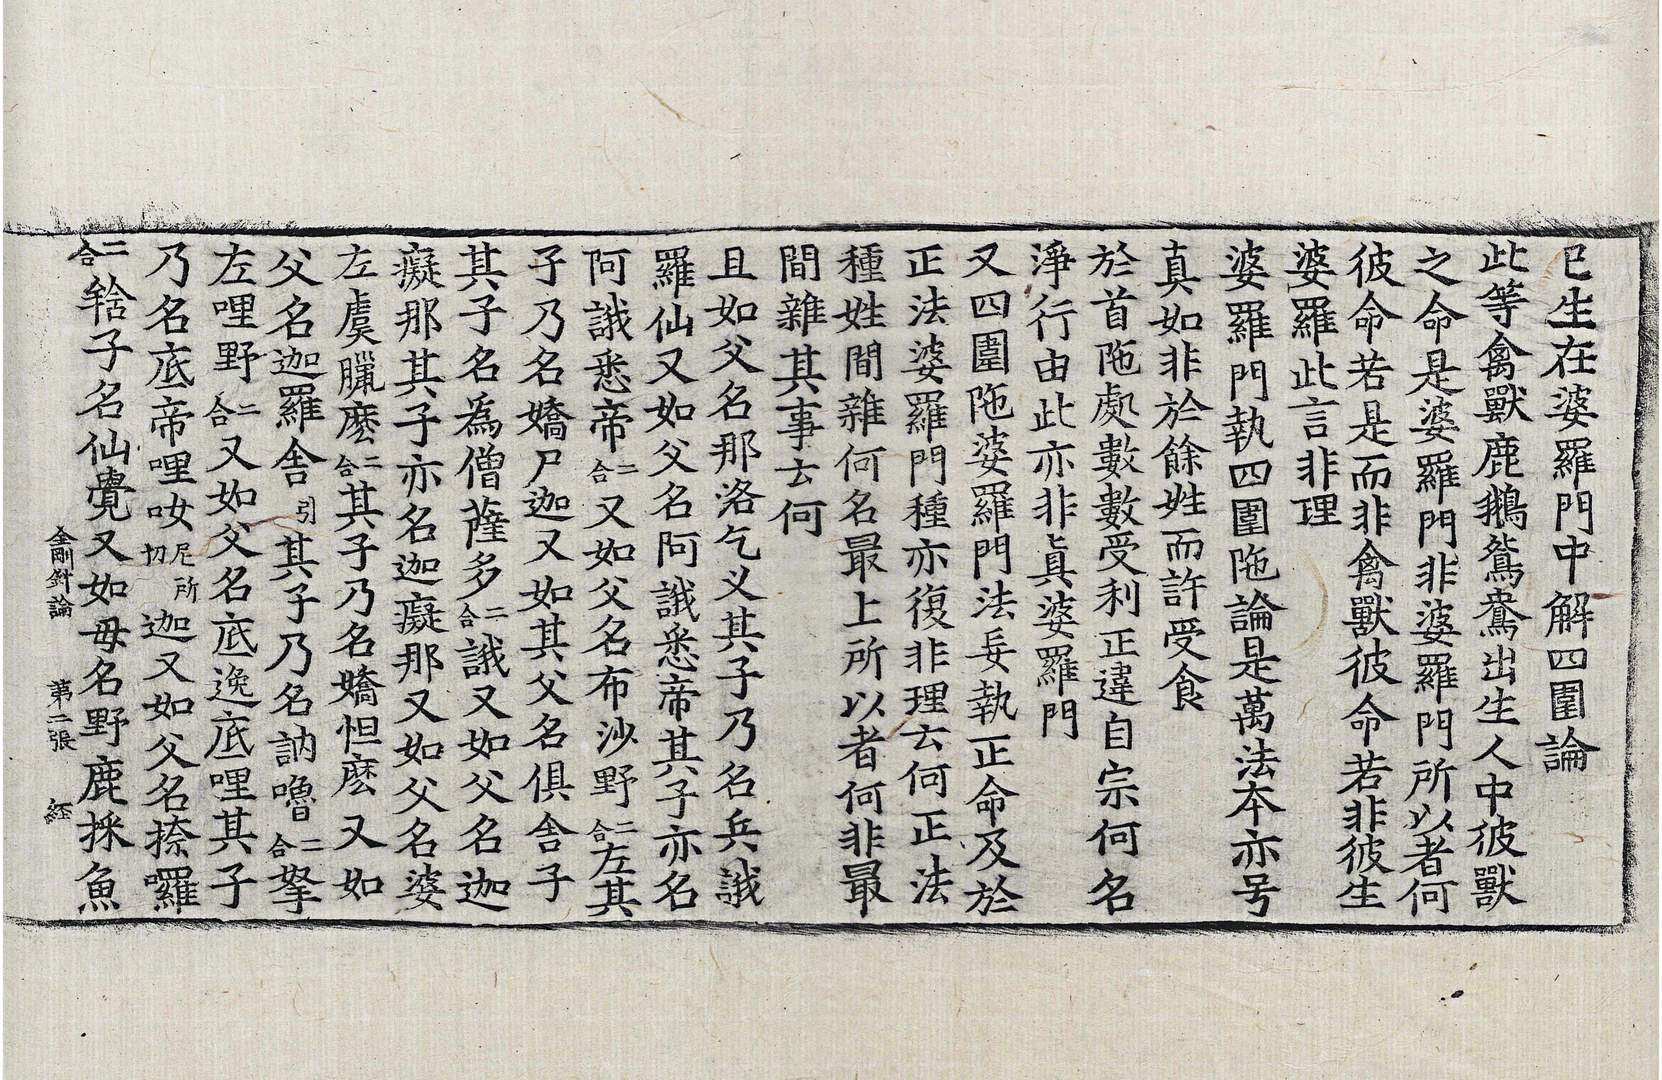 已生在婆羅門中解四圍論
此等禽獸鹿鵝鴛鴦出生人中彼獸
之命是婆羅門非婆羅門所以者何
彼命若是而非禽獸彼命若非彼生
婆羅此言非理
婆羅門執四圍陁論是萬法本亦号
真如非於餘姓而許受食
於首陁處數數受利正違自宗何名
淨行由此亦非真婆羅門
又四圍陁婆羅門法妄執正命及於
正法婆羅門種亦復非理云何正法
種姓間雜何名最上所以者何非最
間雜其事云何
且如父名那洛乞义其子乃名兵誐
羅仙又如父名阿誐悉帝其子亦名
阿誐悉帝二合又如父名布沙野二合左其
子乃名嬌尸迦又如其父名俱舍子
其子名為僧薩多二合誐又如父名迦
癡那其子亦名迦癡那又如父名婆
左虞臈麽二合其子乃名嬌怛麽又如
父名迦羅舍引其子乃名訥嚕二合拏
左哩野二合又如父名底逸底哩其子
乃名底帝哩吹尼所切迦又如父名捺囉
二合辖子名仙覺又如母名野鹿採魚
金剛針論 第二張 經